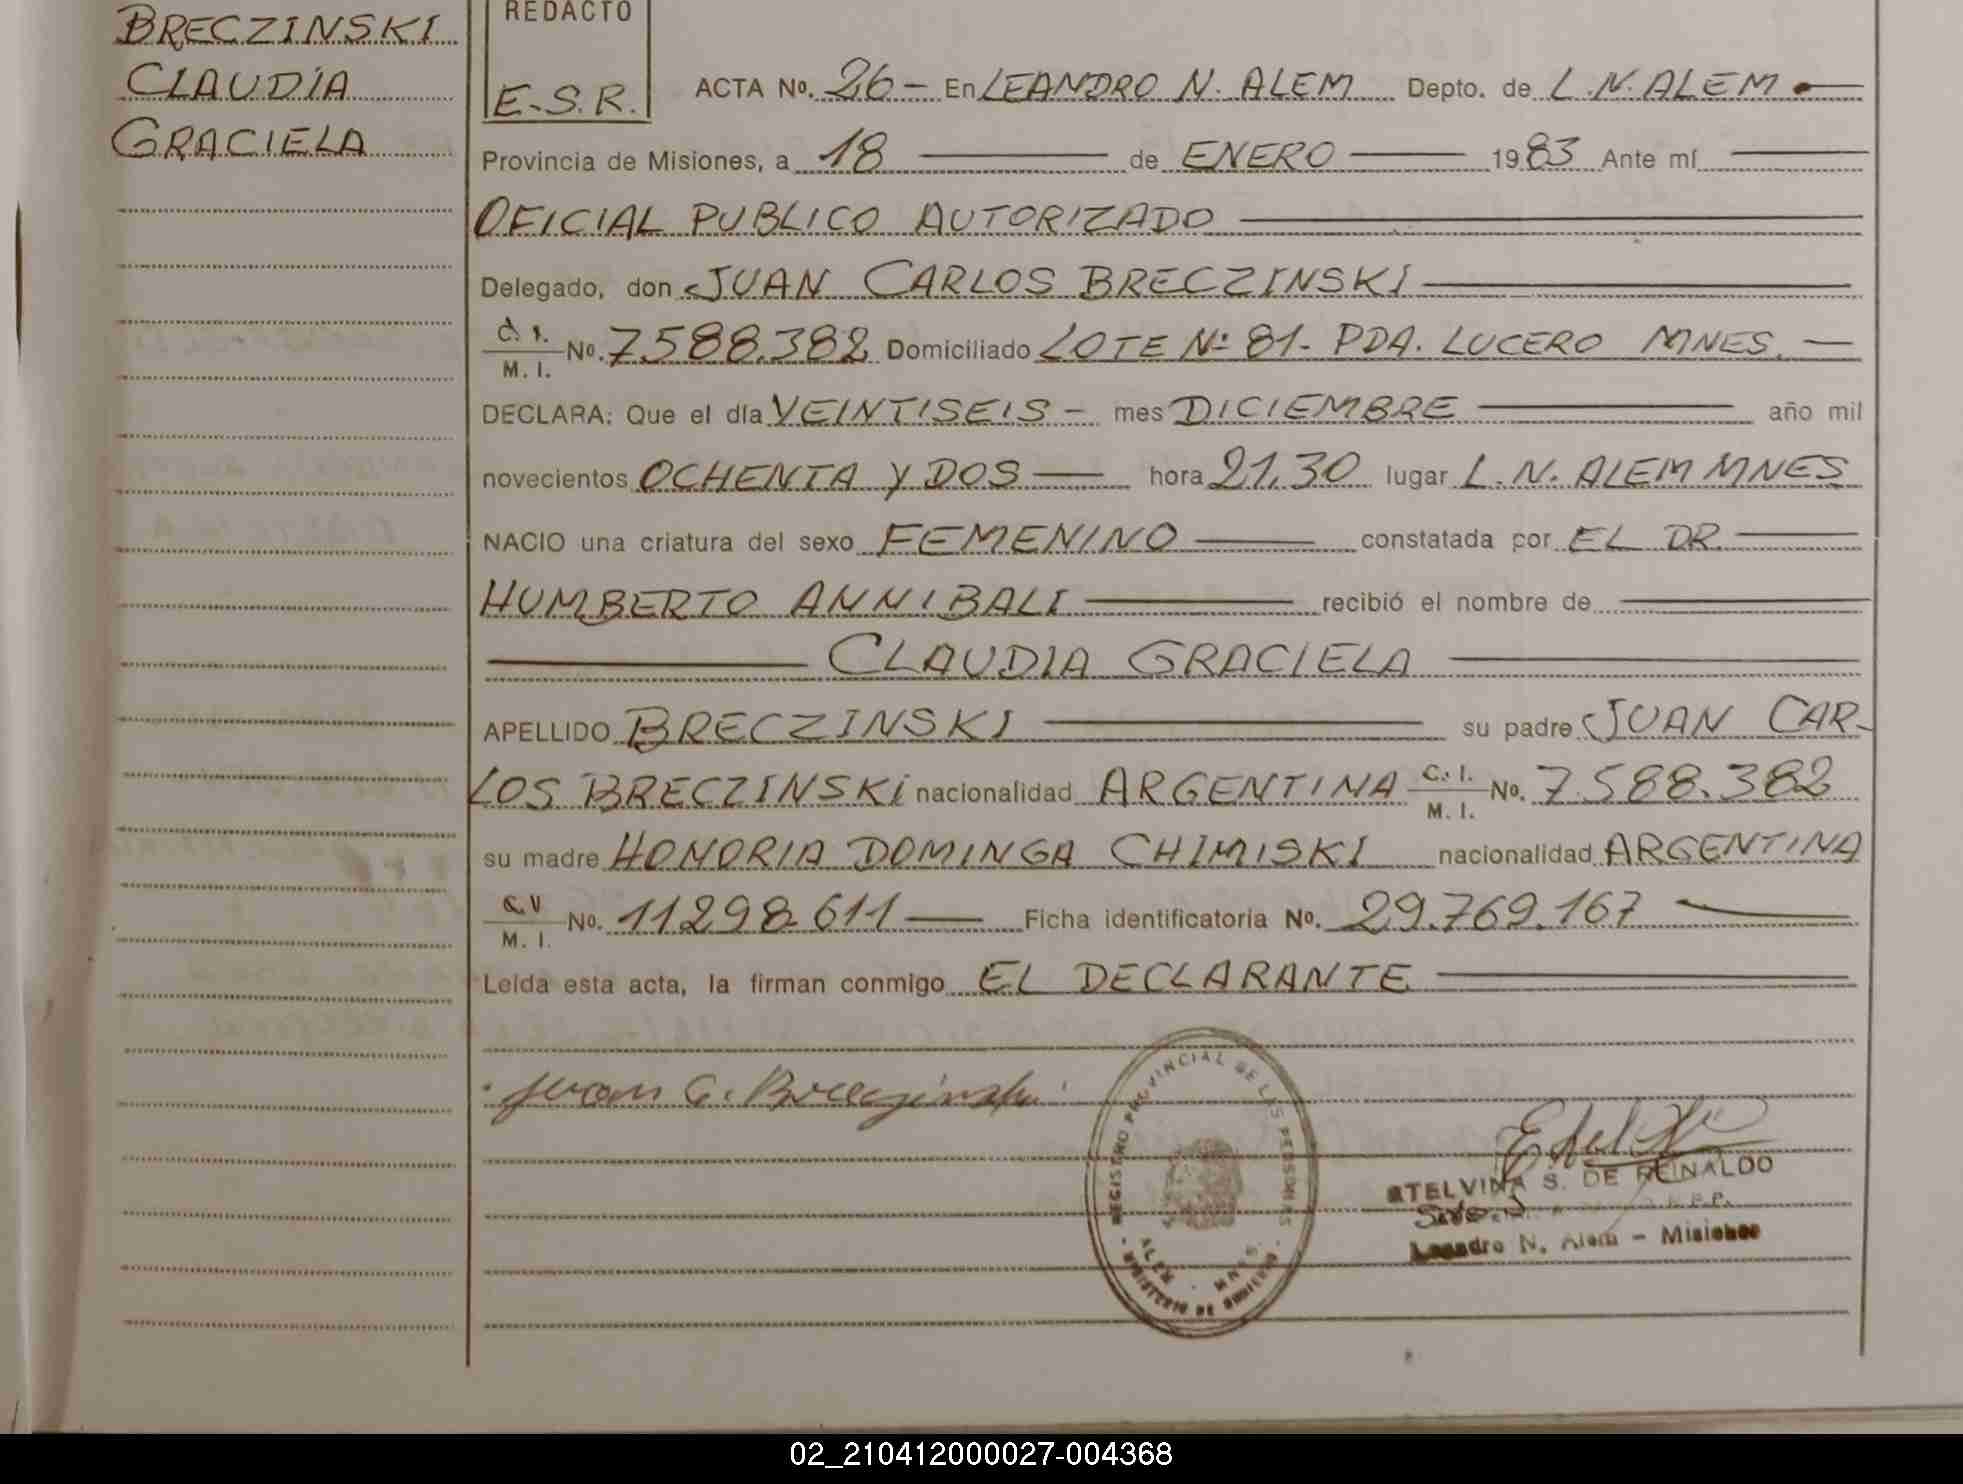 BRECZINSKI
CLAUDIA
GRACIELA
REDACTO
E.S.R.
ACTA No. 26 - En LEANDRO N. ALEM Depto. de L.N. ALEM
Provincia de Misiones, a 18 de ENERO 1983 Ante mí
OFICIAL PUBLICO AUTORIZADO
Delegado, don JUAN CARLOS BRECZINSKI
C. I. M. I. No. 7.588.382 Domiciliado LOTE Nº 81 - PDA. LUCERO MNES.
DECLARA: Que el día VEINTISEIS - mes DICIEMBRE año mil
novecientos OCHENTA Y DOS hora 21,30 lugar L.N. ALEM MNES
NACIO una criatura del sexo FEMENINO constatada por EL DR.
HUMBERTO ANNIBALI recibió el nombre de
CLAUDIA GRACIELA
APELLIDO BRECZINSKI su padre JUAN CAR-
LOS BRECZINSKI nacionalidad ARGENTINA C. I. M. I. No. 7.588.382
su madre HONORIA DOMINGA CHIMISKI nacionalidad ARGENTINA
M. I. No. 11.298.611 Ficha identificatoria No. 29.769.167
Leída esta acta, la firman conmigo EL DECLARANTE
Juan C. Breczinski
REGISTRO PROVINCIAL DE LAS PERSONAS
ALEM - MNES.
MINISTERIO DE GOBIERNO
ETELVINA S. DE REINALDO
R.P.P.
Leandro N. Alem - Misiones
02_210412000027-004368